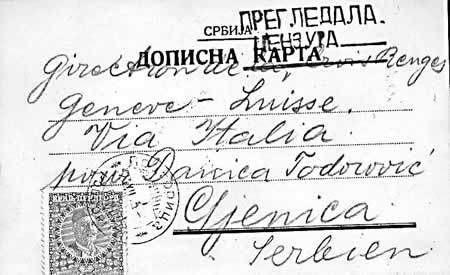 СРБИЈА ПРЕГЛЕДАЛА.
ЦЕНЗУРА
ДОПИСНА КАРТА
Direction de la Croix Rouge
Geneve - Suisse.
Via Italia
pour Danica Todorović
Sjenica
Serbien